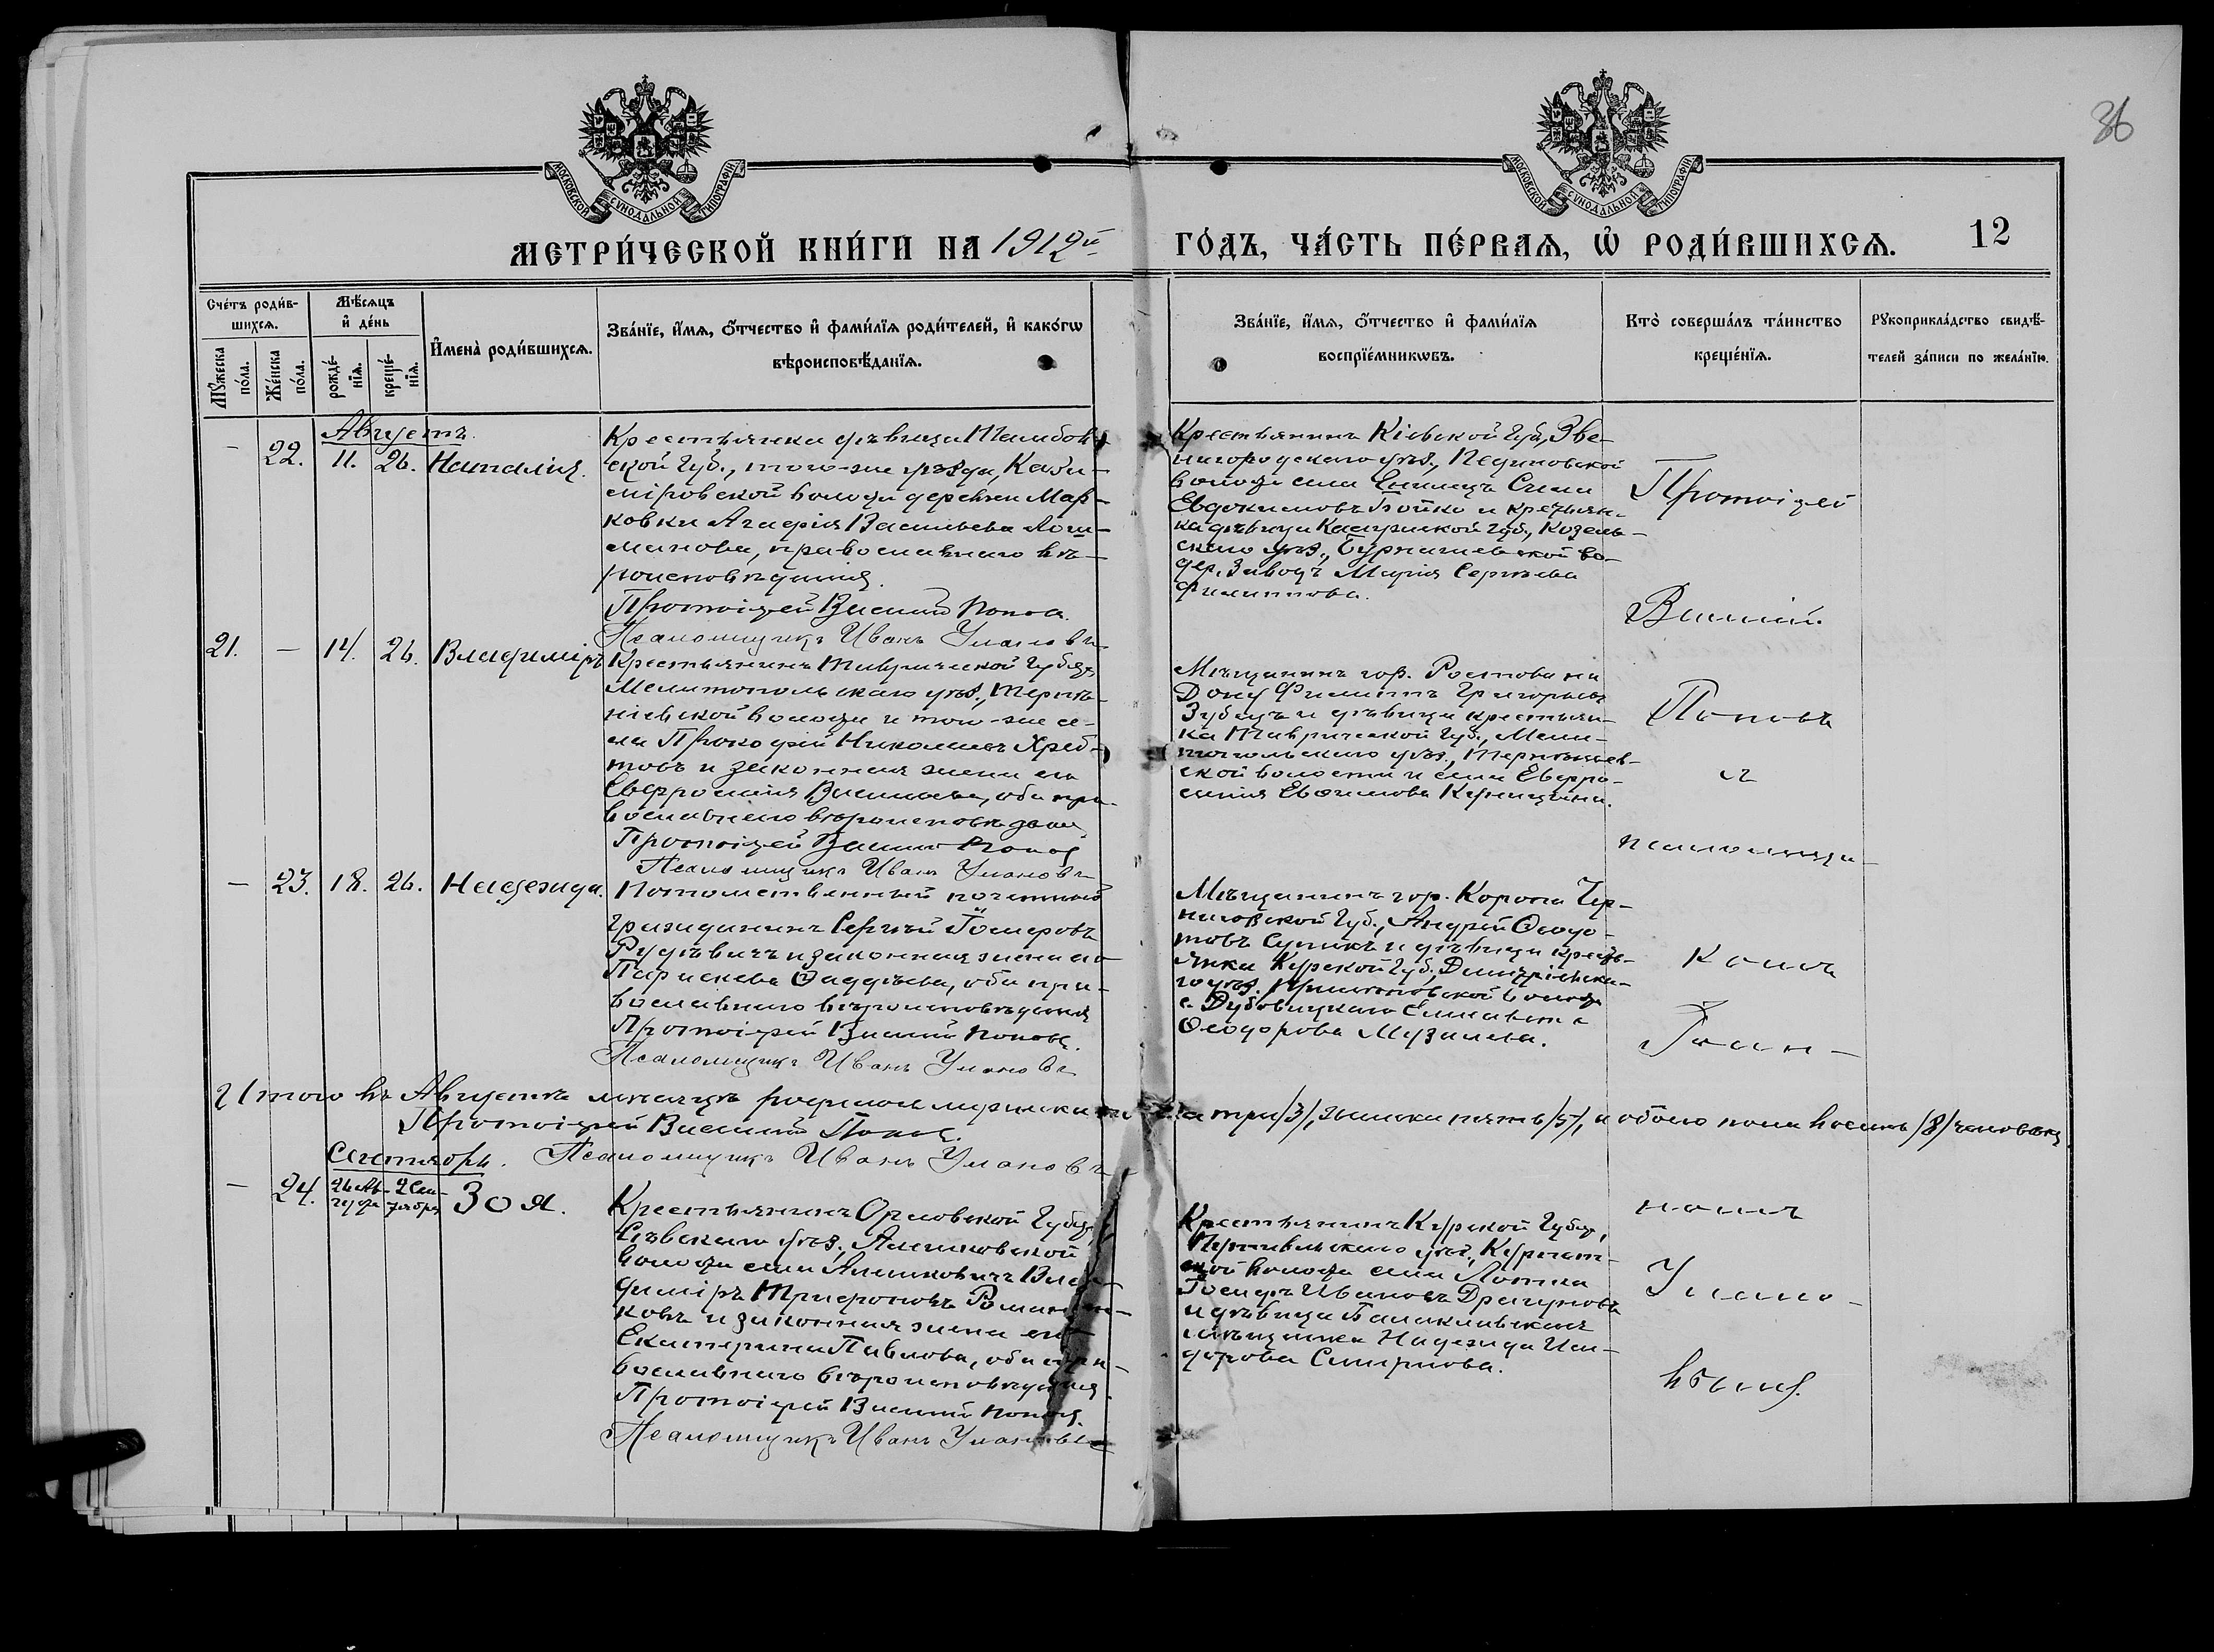 36
МОСКОВСКОЙ СУНОДАЛЬНОЙ ТИПОГРАФІИ
МОСКОВСКОЙ СУНОДАЛЬНОЙ ТИПОГРАФІИ
МЕТРИ́ЧЕСКОЙ КНИ́ГИ НА 1912й ГО́ДЪ, ЧА́СТЬ ПЕ́РВАѦ, Ѡ҆ РОДИ́ВШИХСѦ. 12
Сче́тъ роди́вшихсѧ.
Мꙋ́жеска по́ла.
Же́нска по́ла.
Мѣ́сѧцъ и҆ де́нь
рожде́нїѧ.
креще́нїѧ.
И҆мена̀ роди́вшихсѧ.
Зва́нїе, и҆́мѧ, ѻ҆́тчество и҆ фами́лїѧ роди́телей, и҆ како́гѡ
вѣроисповѣ́данїѧ.
Зва́нїе, и҆́мѧ, ѻ҆́тчество и҆ фами́лїѧ
воспрїе́мникѡвъ.
Кто̀ соверша́лъ та́инство
креще́нїѧ.
Рꙋкоприкла́дство свидѣ́-
телей за́писи по жела́нїю.
Августъ.
- 22. 11. 26. Наталія.
Крестьянка дѣвица Тамбов-
ской губ., того-же уѣзда, Кази-
міровской волости деревни Мар-
ковки Агафія Васильева
православнаго вѣ-
роисповѣданія.
Протоіерей Василій Попов.
Псаломщикъ Иванъ Улановъ
Крестьянинъ Кіевской губ., Зве-
нигородскаго уѣз., Пединовской
волости села
Евдокимовъ Бойко и крестьян-
ка дѣвица Калужской губ., Козель-
скаго уѣз., во-
дер. Заводъ Марія Сергѣева
Филиппова.
21. - 14. 26. Владиміръ
Крестьянинъ Таврической губер.
Мелитопольскаго уѣз., Терпѣ-
ніевской волости и того-же се-
ла Прокофій Николаевъ Хреб-
товъ и законная жена его
Евфросинія Васильева, оба пра-
вославнаго вѣроисповѣданія
Протоіерей Василій Попов
Псаломщикъ Иванъ Улановъ
Мѣщанинъ гор. Ростова на
Дону Филиппъ Григорьевъ
Зубецъ и дѣвица крестьян-
ка Таврической губ., Мели-
топольскаго уѣз., Терпѣніев-
ской волости и села Евфро-
синія Евфимова
- 23. 18. 26. Надежда.
Потомственный почетный
гражданинъ Сергѣй
и законная жена его
Параскева Фаддѣева, оба пра-
вославнаго вѣроисповѣданія
Протоіерей Василій Попов.
Псаломщикъ Иванъ Улановъ
Мѣщанинъ гор. Коропа Чер-
ниговской губ., Андрей Ѳеодо-
товъ и дѣвица крестья-
янка Курской губ., Дмитріевска-
го уѣз. волости
с. Дубовицкаго Елисавета
Ѳеодорова Музалева.
Протоіерей
Василій
Поповъ
съ
псаломщи-
комъ
Іоан-
номъ
Улано-
вымъ.
Итого въ Августѣ мѣсяцѣ родилось мужска пола три /3/, женска пять /5/, и обоего пола восемь /8/ человѣкъ.
Протоіерей Василій Попов.
Сентябрь. Псаломщикъ Иванъ Улановъ
- 24. 26 Августа 2 Сентября Зоя.
Крестьянинъ Орловской губер.
Сѣвскаго уѣз., Алешковской
волости села Алешковичъ Влад-
иміръ Трифоновъ Романен-
ковъ и законная жена его
Екатерина Павлова, оба пра-
вославнаго вѣроисповѣданія.
Протоіерей Василій Попов.
Псаломщикъ Иванъ Улановъ
Крестьянинъ Курской губер.,
Путивльскаго уѣз.,
волости села
Іосифъ Ивановъ Драгуновъ
и дѣвица Балаклавская
мѣщанка Надежда Иси-
дорова Смирнова.